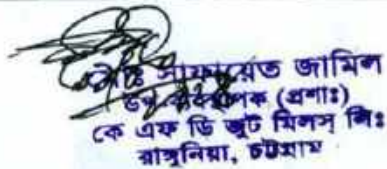 মোঃ সাফায়েত জামিল
উপ ব্যবস্থাপক (প্রশাঃ)
কে এফ ডি জুট মিলস্ লিঃ
রাঙ্গুনিয়া, চট্টগ্রাম